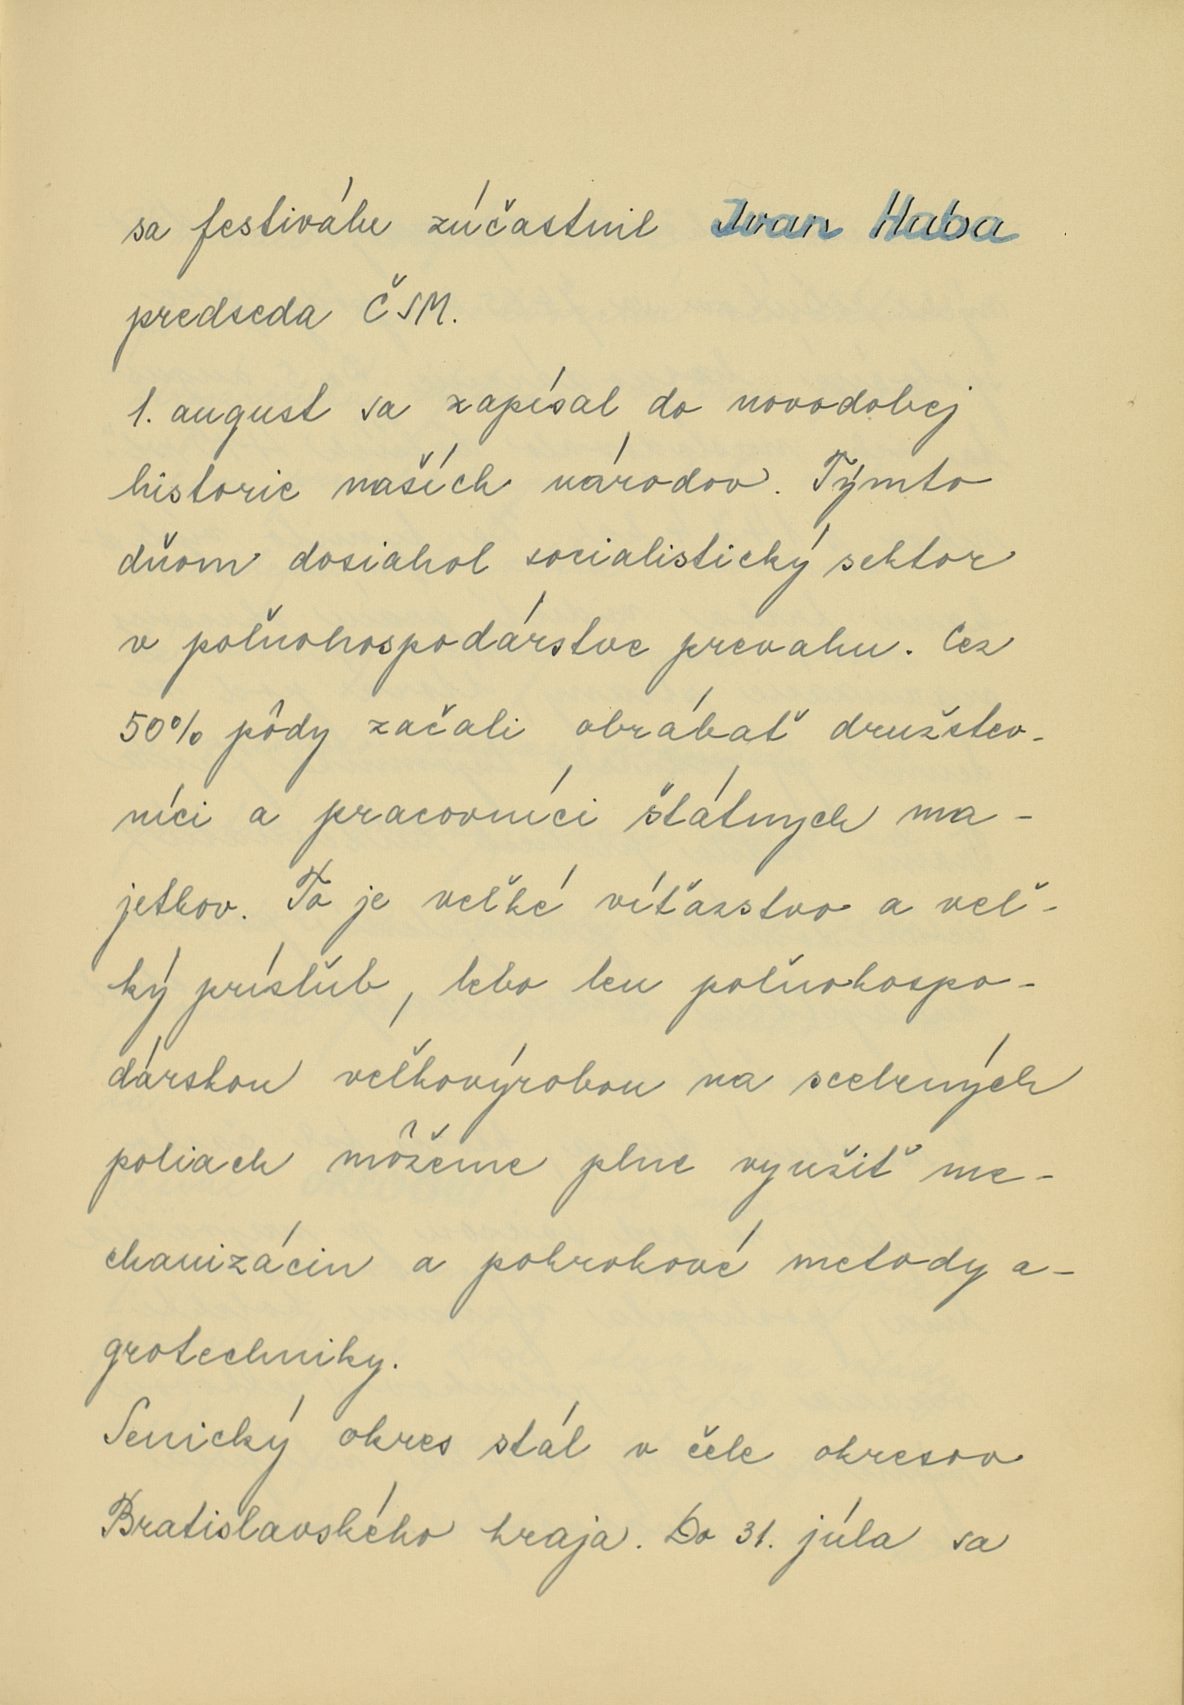 sa festiválu zúčastnil Ivan Haba
predseda ČSM.
1. august sa zapísal do novodobej
historie naších národov. Týmto
dňom dosiahol socialistický sektor
v poľnohospodárstve prevahu. Cez
50% pôdy začali obrábať družstev-
níci a pracovníci štátnych ma-
jetkov. To je veľké víťazstvo a veľ-
ký prísľub, lebo len poľnohospo-
dárskou veľkovýrobou na scelených
poliach môžeme plne využiť me-
chanizáciu a pokrokové metody a-
grotechniky.
Senický okres stál v čele okresov
Bratislavského kraja. Do 31. júla sa